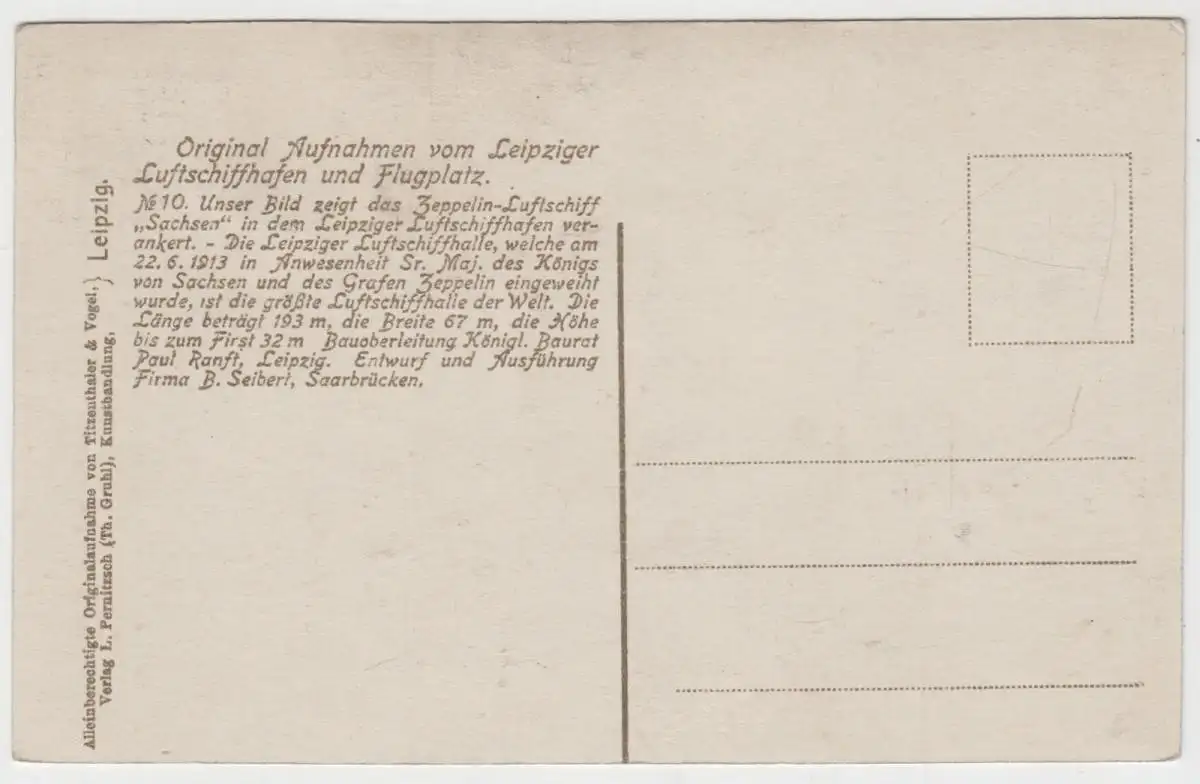 Original Aufnahmen vom Leipziger
Luftschiffhafen und Flugplatz.
№ 10. Unser Bild zeigt das Zeppelin-Luftschiff
„Sachsen“ in dem Leipziger Luftschiffhafen ver-
ankert. - Die Leipziger Luftschiffhalle, welche am
22. 6. 1913 in Anwesenheit Sr. Maj. des Königs
von Sachsen und des Grafen Zeppelin eingeweiht
wurde, ist die größte Luftschiffhalle der Welt. Die
Länge beträgt 193 m, die Breite 67 m, die Höhe
bis zum First 32 m Bauoberleitung Königl. Baurat
Paul Ranft, Leipzig. Entwurf und Ausführung
Firma B. Seibert, Saarbrücken.
Alleinberechtigte Originalaufnahme von Titzenthaler & Vogel,
Verlag L. Pernitzsch (Th. Gruhl), Kunsthandlung,
} Leipzig.